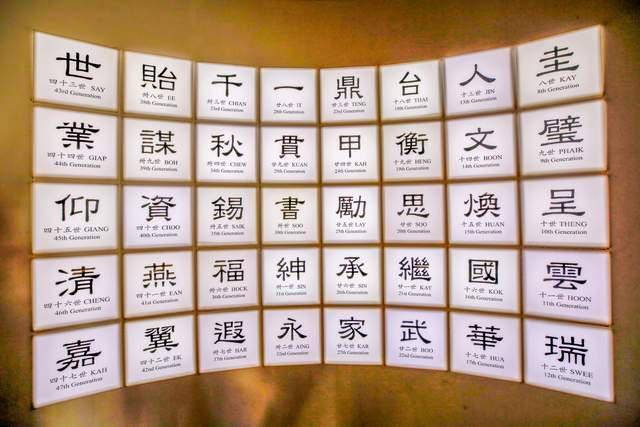 圭
八世 KAY
8th Generation
璧
九世 PHAIK
9th Generation
呈
十世 THENG
10th Generation
雲
十一世 HOON
11th Generation
瑞
十二世 SWEE
12th Generation
人
十三世 JIN
13th Generation
文
十四世 BOON
14th Generation
煥
十五世 HUAN
15th Generation
國
十六世 KOK
16th Generation
華
十七世 HUA
17th Generation
台
十八世 THAI
18th Generation
衡
十九世 HENG
19th Generation
思
廿世 SOO
20th Generation
繼
廿一世 KAY
21st Generation
武
廿二世 BOO
22nd Generation
鼎
廿三世 TENG
23rd Generation
甲
廿四世 KAH
24th Generation
勵
廿五世 LAY
25th Generation
承
廿六世 SIN
26th Generation
家
廿七世 KAR
27th Generation
一
廿八世 IT
28th Generation
貫
廿九世 KUAN
29th Generation
書
卅世 SOO
30th Generation
紳
卅一世 SIN
31st Generation
永
卅二世 AING
32nd Generation
千
卅三世 CHIAN
33rd Generation
秋
卅四世 CHEW
34th Generation
錫
卅五世 SAIK
35th Generation
福
卅六世 HOCK
36th Generation
遐
卅七世 HAR
37th Generation
貽
卅八世 EE
38th Generation
謀
卅九世 BOH
39th Generation
資
四十世 CHOO
40th Generation
燕
四十一世 EAN
41st Generation
翼
四十二世 EK
42nd Generation
世
四十三世 SAY
43rd Generation
業
四十四世 GIAP
44th Generation
仰
四十五世 GIANG
45th Generation
清
四十六世 CHENG
46th Generation
嘉
四十七世 KAH
47th Generation